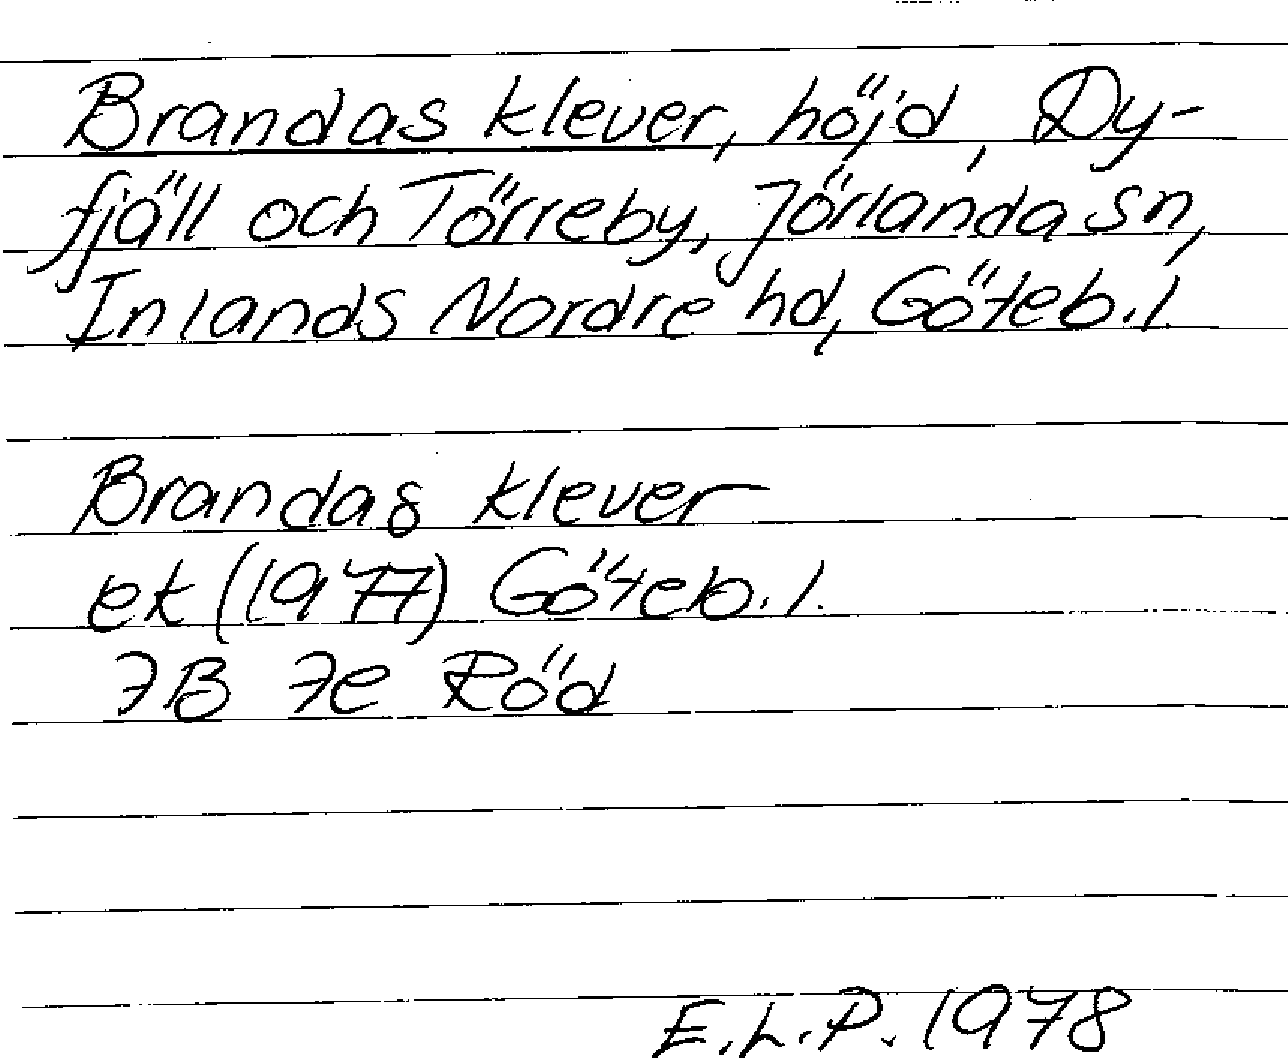 Brandas klever, höjd, Dy-
fjäll och Törreby, Jörlanda sn,
Inlands Nordre hd, Göteb. l.
Brandas klever
ek (1977) Göteb. l.
7B 7e Röd
E.L.P. 1978